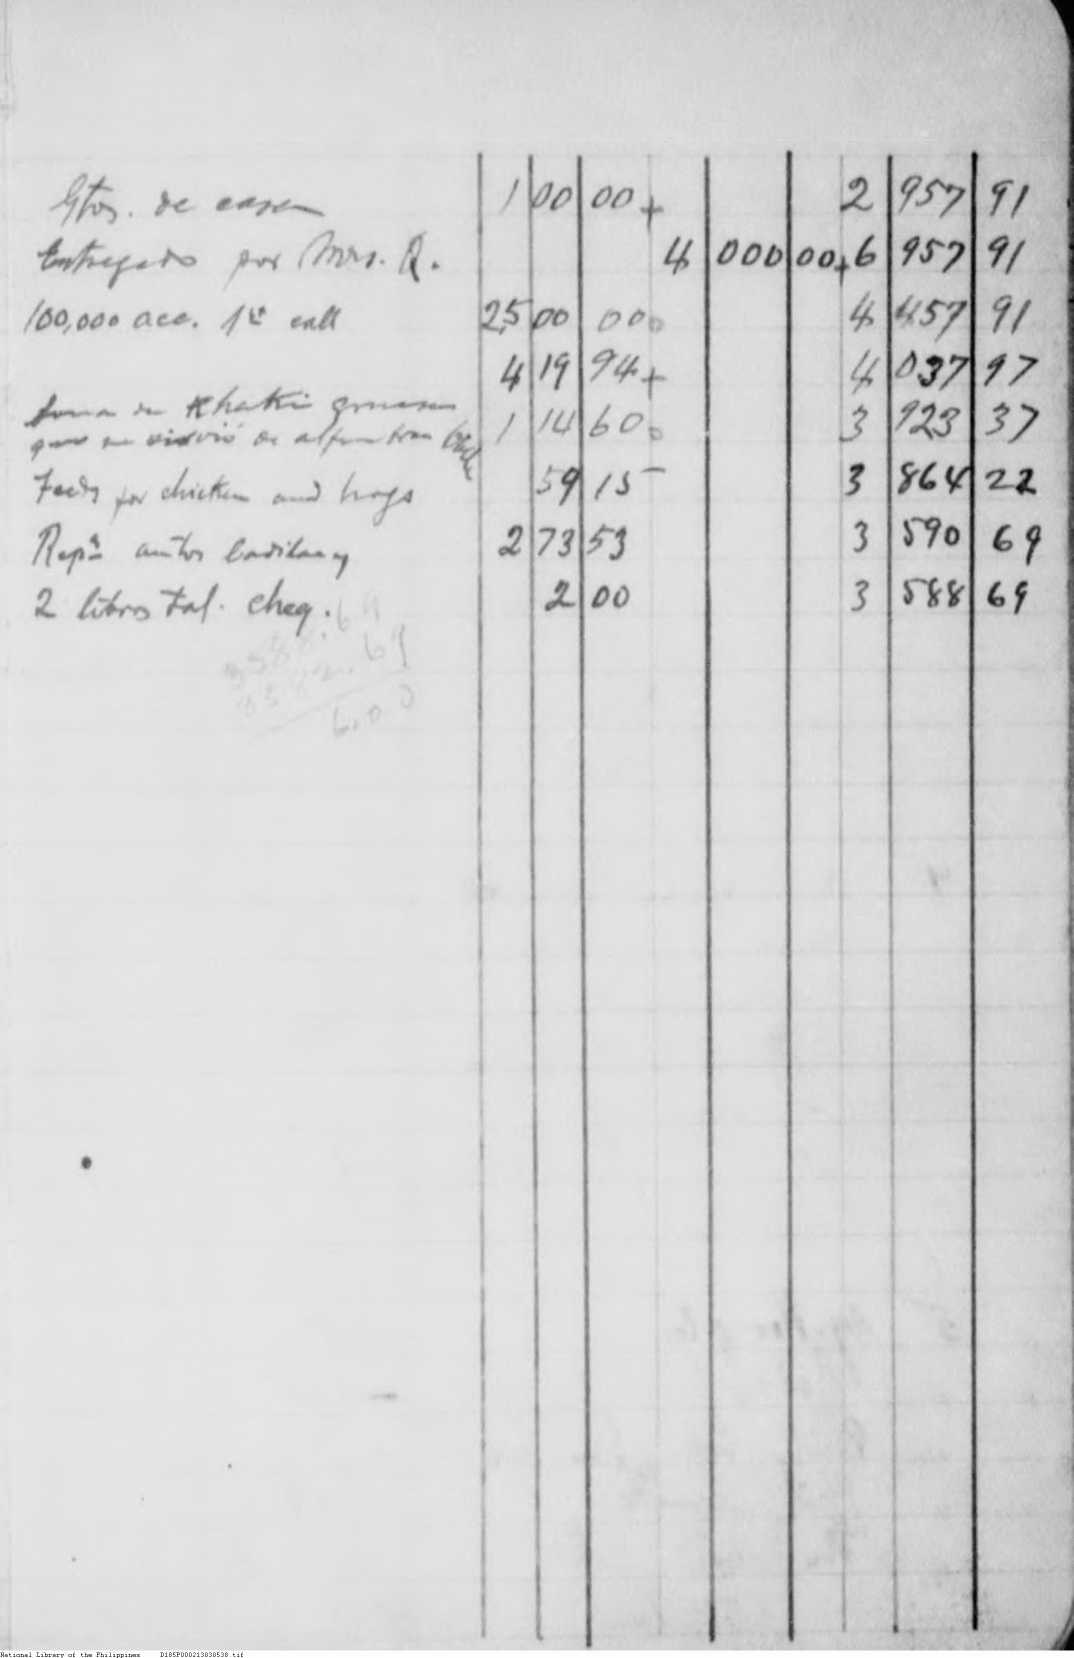 Gtos. de casa 1 00 00+ 2 957 91
Entregado por Mrs. Q. 4 000 00+ 6 957 91
100,000 acc. 1st call 2,5 00 00o 4 457 91
4 19 94+ 4 037 97
Lona de Khaki gruesa
que se sirvió de alfombra 1 14 60o 3 923 37
Feeds for chicken and hogs 59 15- 3 864 22
Repn autos Cadillac y 2 73 53 3 590 69
2 libros tal. cheq. 2 00 3 588 69
3588.69
3582.69
6.00
National Library of the Philippines D185P000213038538.tif